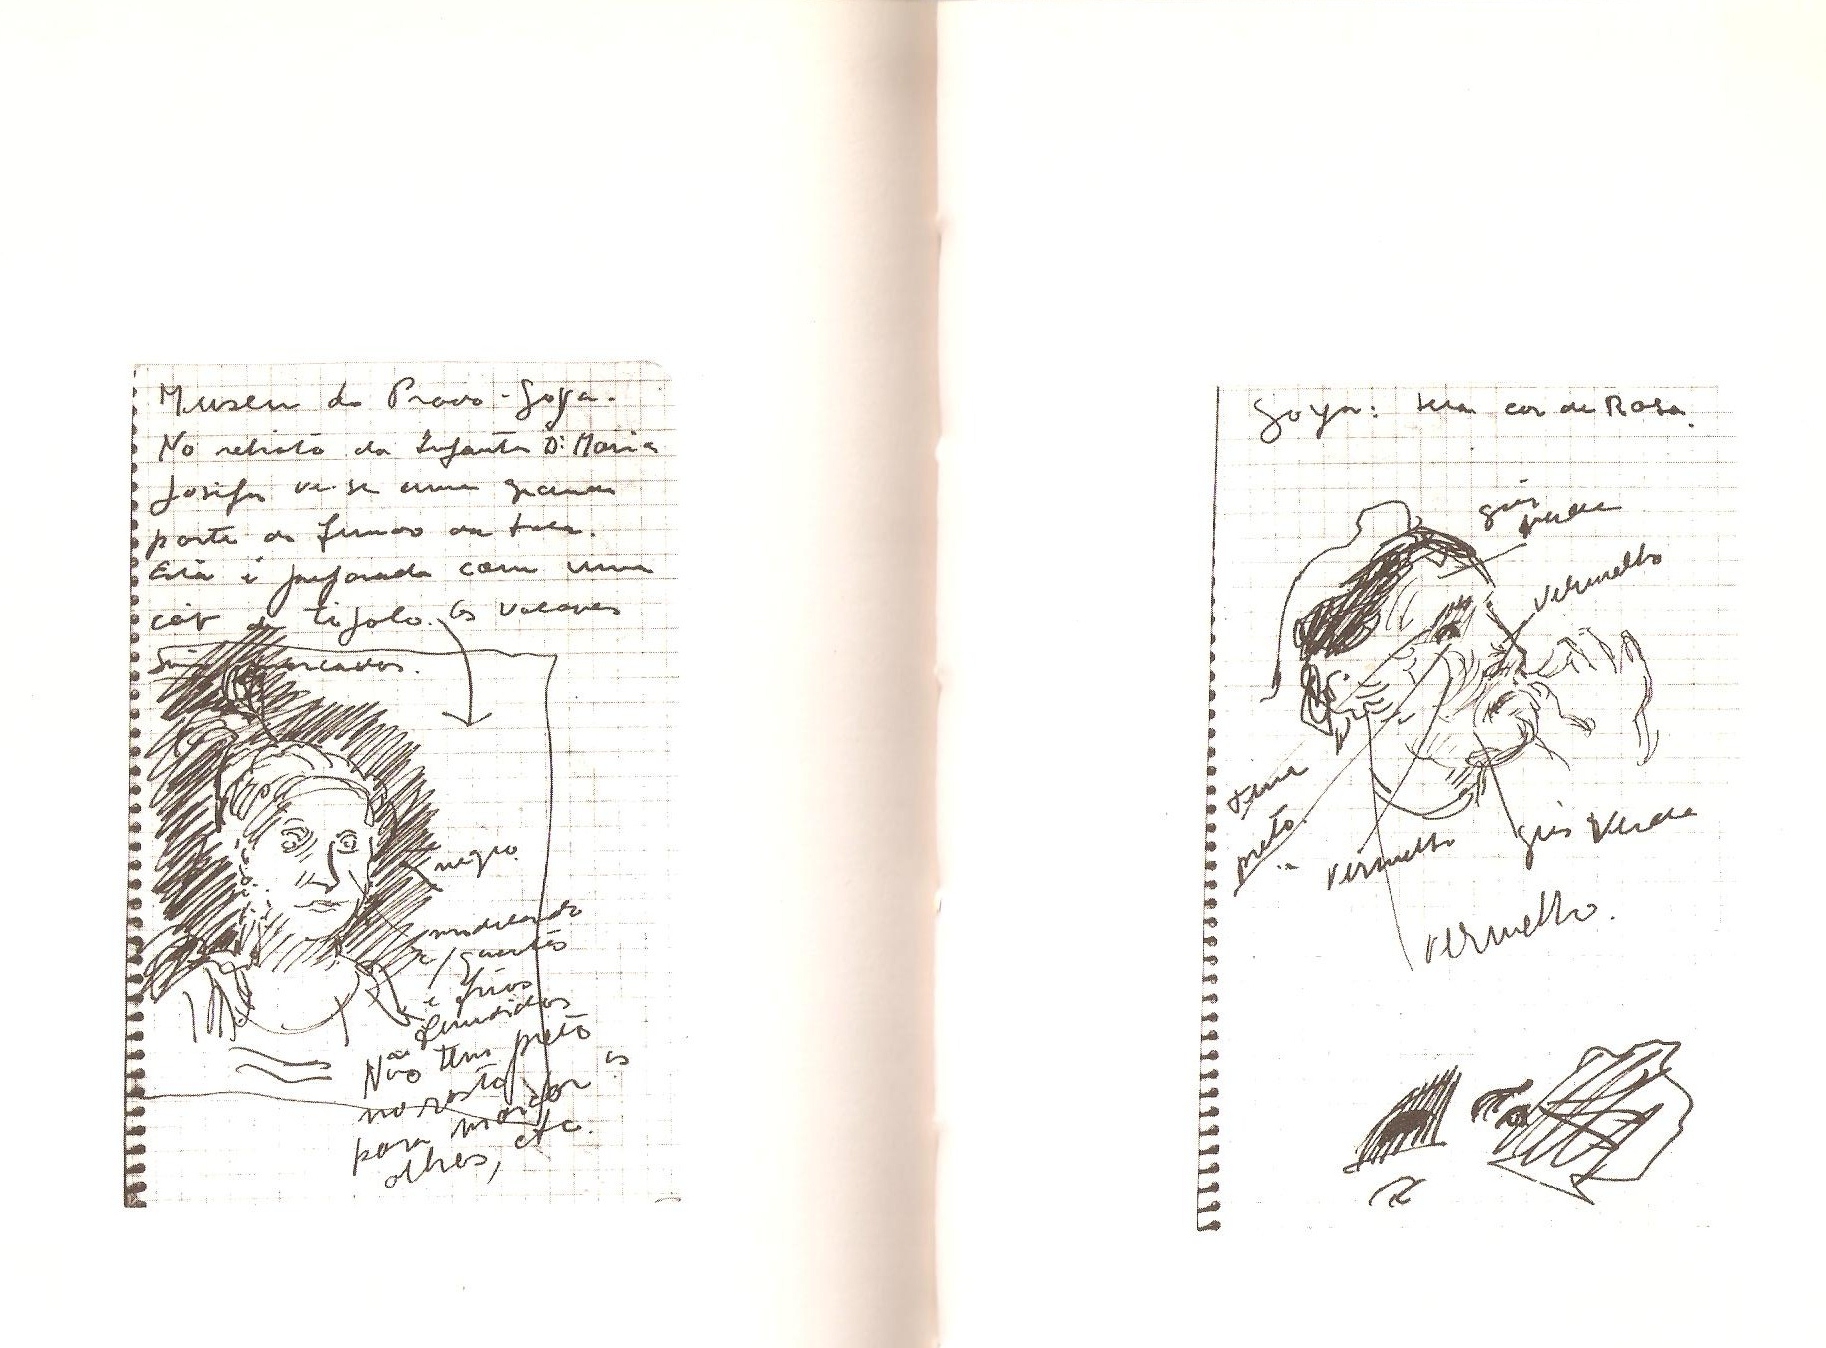 Museu do Prado - Goya.
No retrato da Infanta D. Maria
Josefa ve-se uma grande
parte do fundo da tela.
Esta é preparada com uma
côr de tijolo. Os valores
são marcados.
negro
modelando
/ quentes
e frios
fundidos
Não tem preto
no rosto
para marcar os
olhos, etc.
Goya: tela cor de Rosa.
gris
verde
vermelho
terra
preto.
vermelho
gris verde
vermelho.